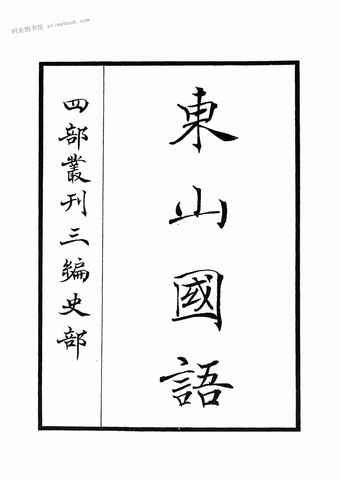 東山國語
四部叢刊三編史部